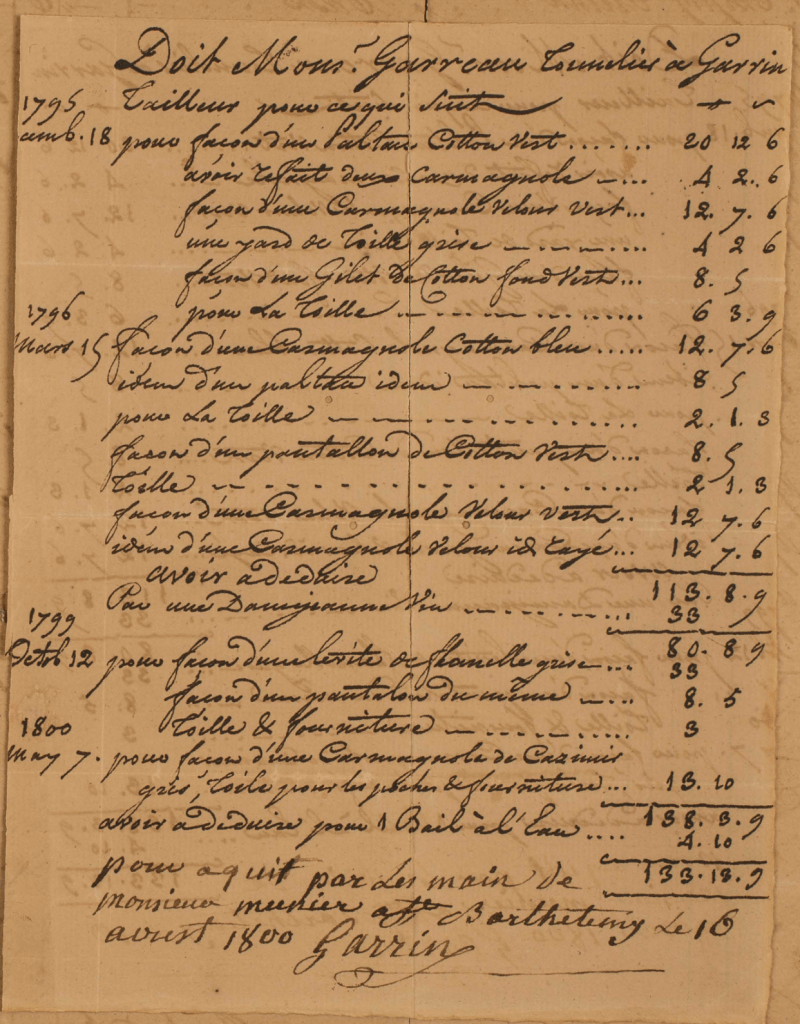 Doit Mons.r Garreau Tonnelier à Garrin
1795 Tailleur pour ce qui Suit
amb. 18 pour façon d'un Paltau Cotton Vert ....... 20 12 6
avoir refait deux Carmagnole —... 4 2. 6
façon d'une Carmagnole Velour Vert... 12. 7. 6
une yard de Toille grise — — — ..... 4 2 6
façon d'un Gilet De Cotton fond Vert... 8. 5
1796 pour La Toille — - — - — ......... 6 3. 9
Mars 15 façon d'une Carmagnole Cotton bleu ..... 12. 7. 6
idem d'un paltau idem — — ......... 8 5
pour La Toille — — - - - ........ 2. 1. 3
façon d'un pantallon de Cotton Vert .... 8. 5
Toille — - - - - - - ........ 2 1. 3
façon d'une Carmagnole Velour vert .. 12 7. 6
idem d'une Carmagnole Velour id rayé... 12 7. 6
avoir a deduire 113. 8. 9
Par une Damejeanne Vin — — — ..... 33
1799 80. 8 9
Octb 12 pour façon d'une levite de flanelle grise ... 33
façon d'un pantalon du même — ... 8. 5
1800 Toille & fourniture — — — ........ 3
May 7. pour façon d'une Carmagnole de Cazimir
gris, Toile pour les poches & fourniture... 13. 10
138. 3. 9
avoir a deduire pour 1 Bail à l'Eau .... 4. 10
133. 13. 9
pour aquit par Les main de
monsieur meunier Barthelemy Le 16
avust 1800 Garrin